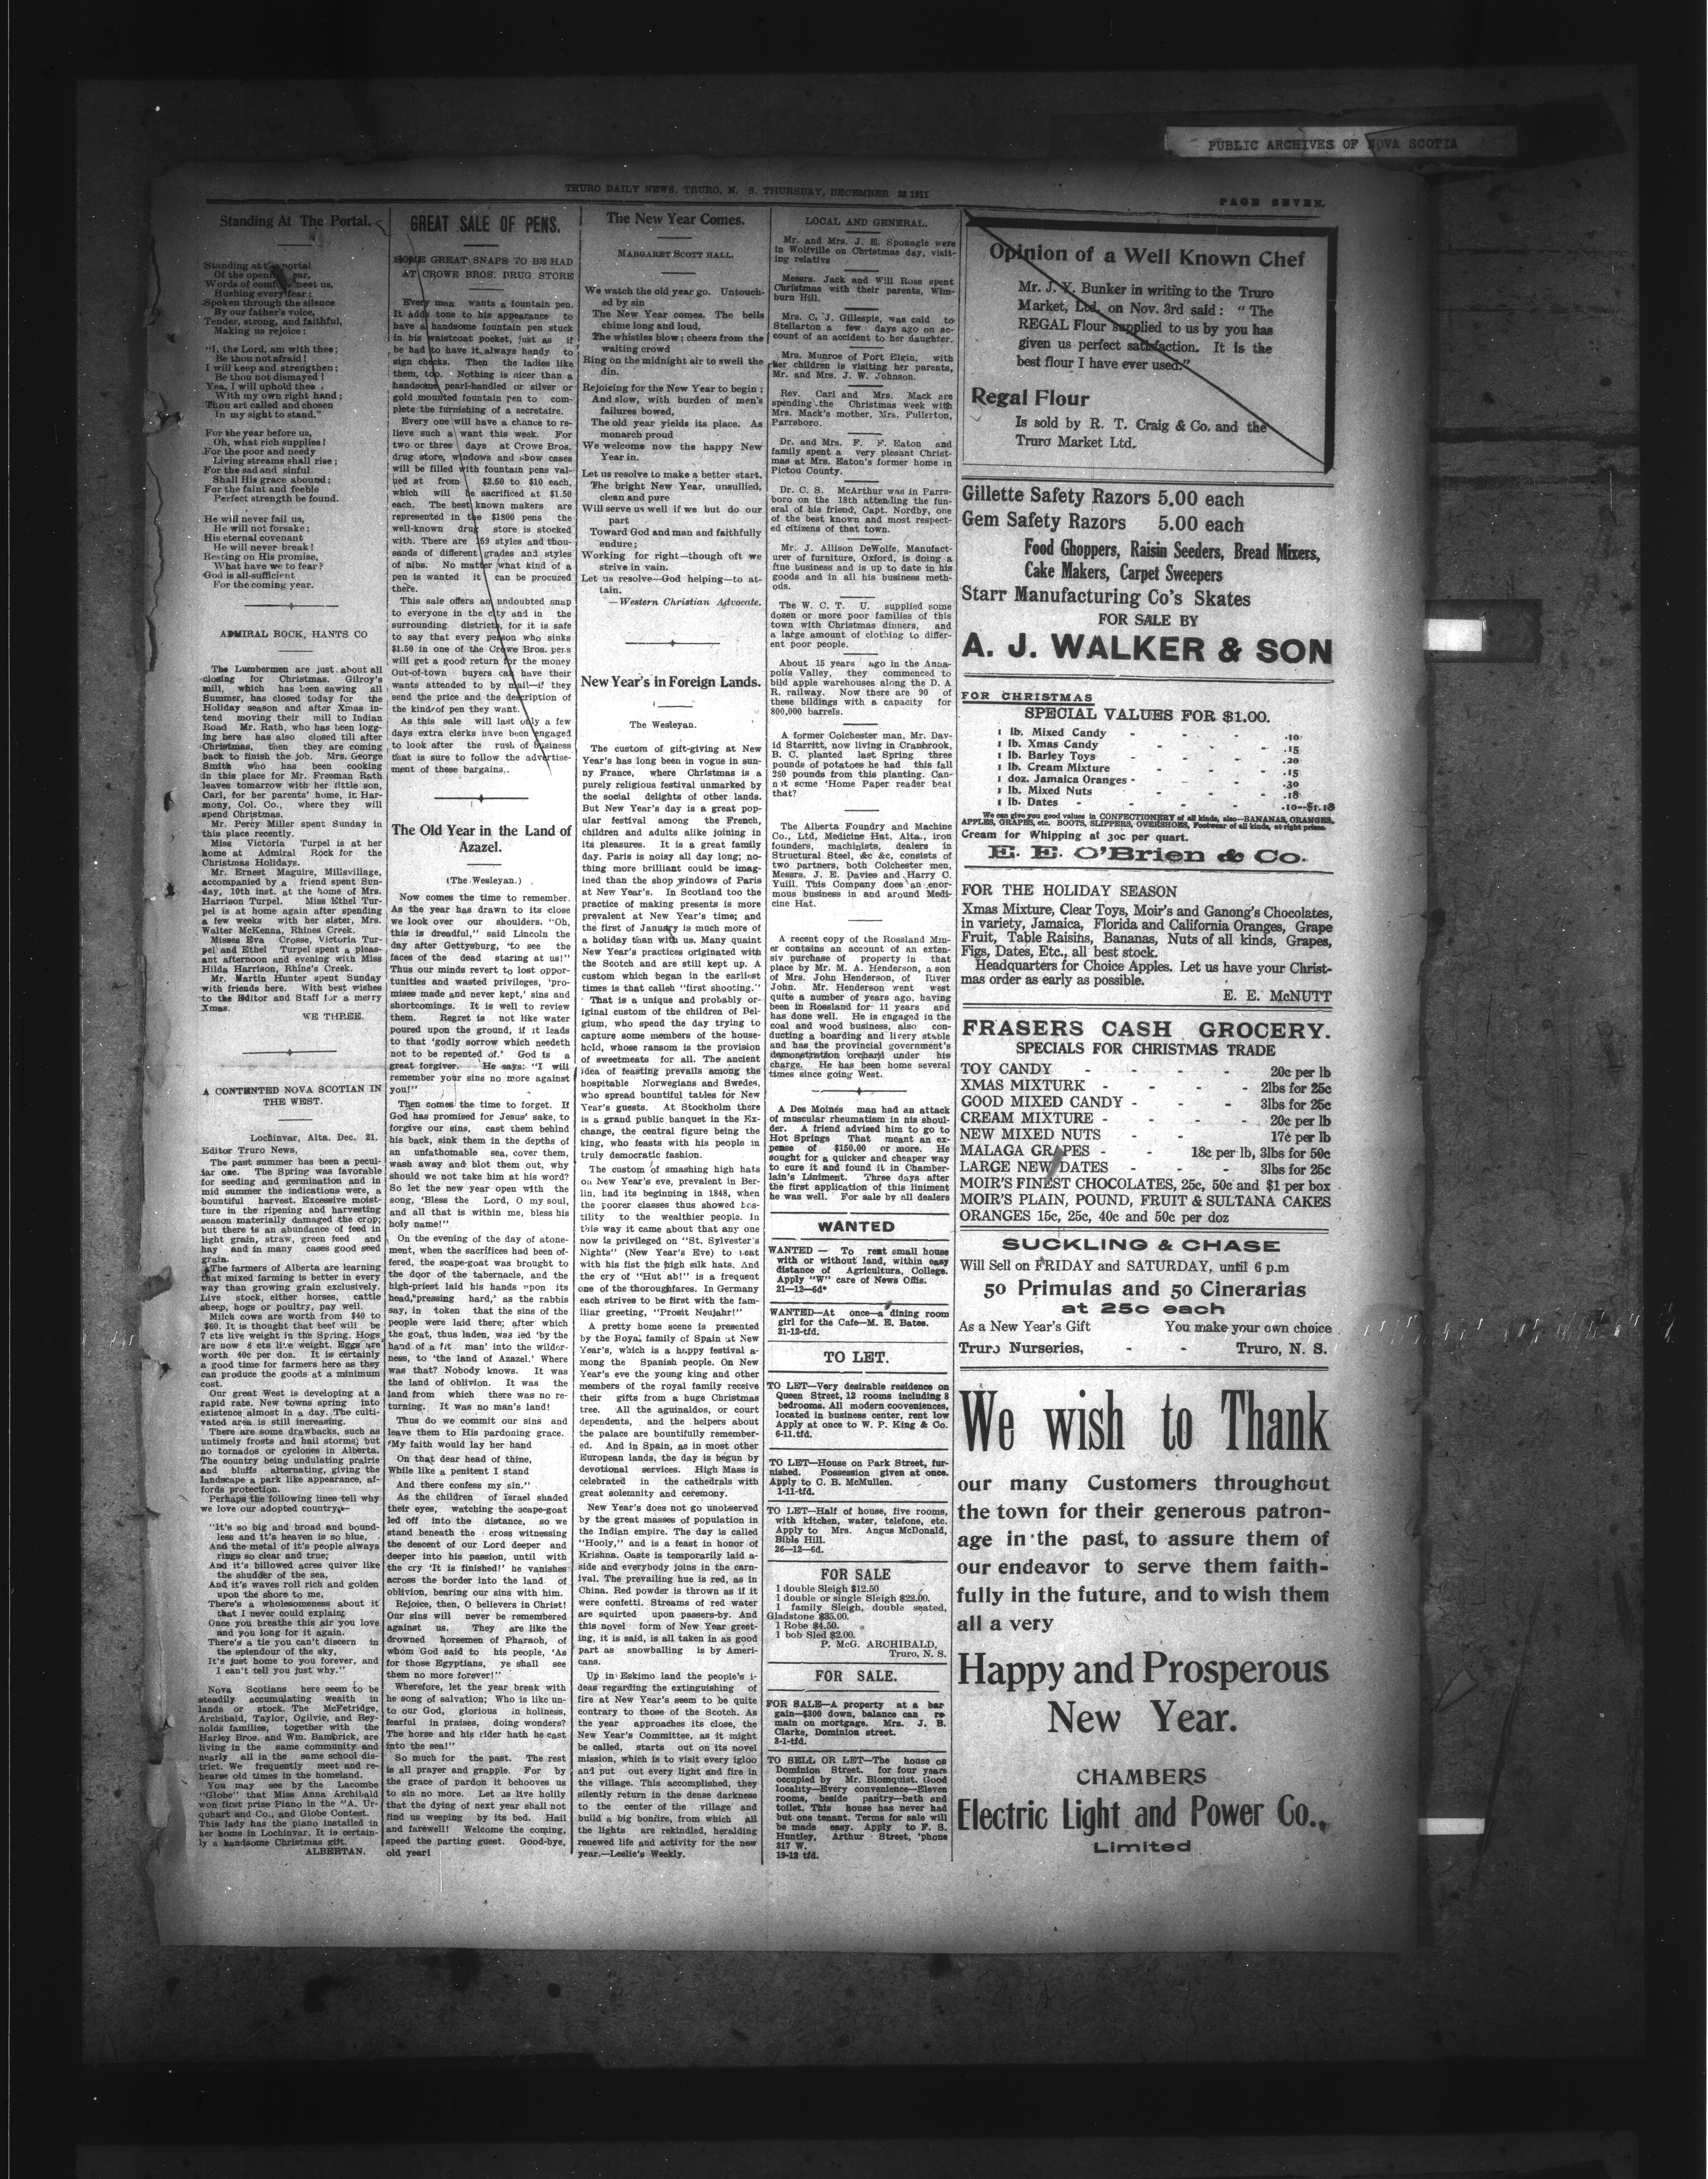 PUBLIC ARCHIVES OF NOVA SCOTIA
TRURO DAILY NEWS, TRURO, N. S. THURSDAY, DECEMBER 28 1911
PAGE SEVEN.
Standing At The Portal.
Standing at the portal
Of the opening year,
Words of comfort meet us,
Hushing every fear;
Spoken through the silence
By our father's voice,
Tender, strong, and faithful,
Making us rejoice:
"I, the Lord, am with thee;
Be thou not afraid!
I will keep and strengthen;
Be thou not dismayed!
Yea, I will uphold thee
With my own right hand;
Thou art called and chosen
In my sight to stand."
For the year before us,
Oh, what rich supplies!
For the poor and needy
Living streams shall rise;
For the sad and sinful
Shall His grace abound;
For the faint and feeble
Perfect strength be found.
He will never fail us,
He will not forsake;
His eternal covenant
He will never break!
Resting on His promise,
What have we to fear?
God is all-sufficient
For the coming year.
ADMIRAL ROCK, HANTS CO
The Lumbermen are just about all
closing for Christmas. Gilroy's
mill, which has been sawing all
Summer, has closed today for the
Holiday season and after Xmas in-
tend moving their mill to Indian
Road Mr. Rath, who has been logg-
ing here has also closed till after
Christmas, then they are coming
back to finish the job. Mrs. George
Smith who has been cooking
in this place for Mr. Freeman Rath
leaves tomorrow with her little son,
Carl, for her parents' home, in Har-
mony, Col. Co., where they will
spend Christmas.
Mr. Percy Miller spent Sunday in
this place recently.
Miss Victoria Turpel is at her
home at Admiral Rock for the
Christmas Holidays.
Mr. Ernest Maguire, Millsvillage,
accompanied by a friend spent Sun-
day, 10th inst. at the home of Mrs.
Harrison Turpel. Miss Ethel Tur-
pel is at home again after spending
a few weeks with her sister, Mrs.
Walter McKenna, Rhines Creek.
Misses Eva Crosse, Victoria Tur-
pel and Ethel Turpel spent a pleas-
ant afternoon and evening with Miss
Hilda Harrison, Rhine's Creek.
Mr. Martin Hunter spent Sunday
with friends here. With best wishes
to the Editor and Staff for a merry
Xmas.
WE THREE.
A CONTENTED NOVA SCOTIAN IN
THE WEST.
Lochinvar, Alta. Dec. 21.
Editor Truro News,
The past summer has been a pecul-
iar one. The Spring was favorable
for seeding and germination and in
mid summer the indications were, a
bountiful harvest. Excessive moist-
ture in the ripening and harvesting
season materially damaged the crop;
but there is an abundance of feed in
light grain, straw, green feed and
hay and in many cases good seed
grain.
The farmers of Alberta are learning
that mixed farming is better in every
way than growing grain exclusively.
Live stock, either horses, cattle
sheep, hogs or poultry, pay well.
Milch cows are worth from $40 to
$60. It is thought that beef will be
7 cts live weight in the Spring. Hogs
are now 8 cts live weight. Eggs are
worth 40c per doz. It is certainly
a good time for farmers here as they
can produce the goods at a minimum
cost.
Our great West is developing at a
rapid rate. New towns spring into
existence almost in a day. The culti-
vated area is still increasing.
There are some drawbacks, such as
untimely frosts and hail storms; but
no tornados or cyclones in Alberta.
The country being undulating prairie
and bluffs alternating, giving the
landscape a park like appearance, af-
fords protection.
Perhaps the following lines tell why
we love our adopted country;—
"It's so big and broad and bound-
less and it's heaven is so blue,
And the metal of it's people always
rings so clear and true;
And it's billowed acres quiver like
the shudder of the sea,
And it's waves roll rich and golden
upon the shore to me,
There's a wholesomeness about it
that I never could explain,
Once you breathe this air you love
and you long for it again.
There's a tie you can't discern in
the splendour of the sky,
It's just home to you forever, and
I can't tell you just why."
Nova Scotians here seem to be
steadily accumulating wealth in
lands or stock. The McFetridge,
Archibald, Taylor, Ogilvie, and Rey-
nolds families, together with the
Harley Bros. and Wm. Bambrick, are
living in the same community and
nearly all in the same school dis-
trict. We frequently meet and re-
hearse old times in the homeland.
You may see by the Lacombe
"Globe" that Miss Anna Archibald
won first prize Piano in the "A. Ur-
quhart and Co., and Globe Contest.
This lady has the piano installed in
her home in Lochinvar. It is certain-
ly a handsome Christmas gift.
ALBERTAN.
GREAT SALE OF PENS.
SOME GREAT SNAPS TO BE HAD
AT CROWE BROS. DRUG STORE
Every man wants a fountain pen.
It adds tone to his appearance to
have a handsome fountain pen stuck
in his waistcoat pocket, just as if
he had to have it always handy to
sign checks. Then the ladies like
them, too. Nothing is nicer than a
handsome pearl-handled or silver or
gold mounted fountain pen to com-
plete the furnishing of a secretaire.
Every one will have a chance to re-
lieve such a want this week. For
two or three days at Crowe Bros.
drug store, windows and show cases
will be filled with fountain pens val-
ued at from $2.50 to $10 each,
which will be sacrificed at $1.50
each. The best known makers are
represented in the $1800 pens the
well-known drug store is stocked
with. There are 169 styles and thou-
sands of different grades and styles
of nibs. No matter what kind of a
pen is wanted it can be procured
there.
This sale offers an undoubted snap
to everyone in the city and in the
surrounding districts, for it is safe
to say that every person who sinks
$1.50 in one of the Crowe Bros. pens
will get a good return for the money
Out-of-town buyers can have their
wants attended to by mail—if they
send the price and the description of
the kind of pen they want.
As this sale will last only a few
days extra clerks have been engaged
to look after the rush of business
that is sure to follow the advertise-
ment of these bargains,.
The Old Year in the Land of
Azazel.
(The Wesleyan.)
Now comes the time to remember.
As the year has drawn to its close
we look over our shoulders. "Oh,
this is dreadful," said Lincoln the
day after Gettysburg, 'to see the
faces of the dead staring at us!"
Thus our minds revert to lost oppor-
tunities and wasted privileges, 'pro-
mises made and never kept,' sins and
shortcomings. It is well to review
them. Regret is not like water
poured upon the ground, if it leads
to that 'godly sorrow which needeth
not to be repented of.' God is a
great forgiver. He says: "I will
remember your sins no more against
you!"
Then comes the time to forget. If
God has promised for Jesus' sake, to
forgive our sins, cast them behind
his back, sink them in the depths of
an unfathomable sea, cover them,
wash away and blot them out, why
should we not take him at his word?
So let the new year open with the
song, 'Bless the Lord, O my soul,
and all that is within me, bless his
holy name!"
On the evening of the day of atone-
ment, when the sacrifices had been of-
fered, the scape-goat was brought to
the door of the tabernacle, and the
high-priest laid his hands upon its
head, "pressing hard,' as the rabbis
say, in token that the sins of the
people were laid there; after which
the goat, thus laden, was led 'by the
hand of a fit man' into the wilder-
ness, to 'the land of Azazel.' Where
was that? Nobody knows. It was
the land of oblivion. It was the
land from which there was no re-
turning. It was no man's land!
Thus do we commit our sins and
leave them to His pardoning grace.
'My faith would lay her hand
On that dear head of thine,
While like a penitent I stand
And there confess my sin."
As the children of Israel shaded
their eyes, watching the scape-goat
led off into the distance, so we
stand beneath the cross witnessing
the descent of our Lord deeper and
deeper into his passion, until with
the cry 'It is finished!' he vanishes
across the border into the land of
oblivion, bearing our sins with him.
Rejoice, then, O believers in Christ!
Our sins will never be remembered
against us. They are like the
drowned horsemen of Pharaoh, of
whom God said to his people, 'As
for those Egyptians, ye shall see
them no more forever!"
Wherefore, let the year break with
he song of salvation; Who is like un-
to our God, glorious in holiness,
fearful in praises, doing wonders?
The horse and his rider hath he cast
into the sea!"
So much for the past. The rest
is all prayer and grapple. For by
the grace of pardon it behooves us
to sin no more. Let us live holily
that the dying of next year shall not
find us weeping by its bed. Hail
and farewell! Welcome the coming,
speed the parting guest. Good-bye,
old year!
The New Year Comes.
MARGARET SCOTT HALL.
We watch the old year go. Untouch-
ed by sin
The New Year comes. The bells
chime long and loud,
The whistles blow; cheers from the
waiting crowd
Ring on the midnight air to swell the
din.
Rejoicing for the New Year to begin;
And slow, with burden of men's
failures bowed,
The old year yields its place. As
monarch proud
We welcome now the happy New
Year in.
Let us resolve to make a better start.
The bright New Year, unsullied,
clean and pure
Will serve us well if we but do our
part
Toward God and man and faithfully
endure;
Working for right—though oft we
strive in vain.
Let us resolve—God helping—to at-
tain.
—Western Christian Advocate.
New Year's in Foreign Lands.
The Wesleyan.
The custom of gift-giving at New
Year's has long been in vogue in sun-
ny France, where Christmas is a
purely religious festival unmarked by
the social delights of other lands.
But New Year's day is a great pop-
ular festival among the French,
children and adults alike joining in
its pleasures. It is a great family
day. Paris is noisy all day long; no-
thing more brilliant could be imag-
ined than the shop windows of Paris
at New Year's. In Scotland too the
practice of making presents is more
prevalent at New Year's time; and
the first of January is much more of
a holiday than with us. Many quaint
New Year's practices originated with
the Scotch and are still kept up. A
custom which began in the earliest
times is that calleh "first shooting."
That is a unique and probably or-
iginal custom of the children of Bel-
gium, who spend the day trying to
capture some members of the house-
hold, whose ransom is the provision
of sweetmeats for all. The ancient
idea of feasting prevails among the
hospitable Norwegians and Swedes,
who spread bountiful tables for New
Year's guests. At Stockholm there
is a grand public banquet in the Ex-
change, the central figure being the
king, who feasts with his people in
truly democratic fashion.
The custom of smashing high hats
on New Year's eve, prevalent in Ber-
lin, had its beginning in 1848, when
the poorer classes thus showed hos-
tility to the wealthier people. In
this way it came about that any one
now is privileged on "St. Sylvester's
Nights" (New Year's Eve) to beat
with his fist the high silk hats. And
the cry of "Hut ab!" is a frequent
one of the thoroughfares. In Germany
each strives to be first with the fam-
iliar greeting, "Prosit Neujahr!"
A pretty home scene is presented
by the Royal family of Spain at New
Year's, which is a happy festival a-
mong the Spanish people. On New
Year's eve the young king and other
members of the royal family receive
their gifts from a huge Christmas
tree. All the aguinaldos, or court
dependents, and the helpers about
the palace are bountifully remember-
ed. And in Spain, as in most other
European lands, the day is begun by
devotional services. High Mass is
celebrated in the cathedrals with
great solemnity and ceremony.
New Year's does not go unobserved
by the great masses of population in
the Indian empire. The day is called
"Hooly," and is a feast in honor of
Krishna. Caste is temporarily laid a-
side and everybody joins in the carn-
ival. The prevailing hue is red, as in
China. Red powder is thrown as if it
were confetti. Streams of red water
are squirted upon passers-by. And
this novel form of New Year greet-
ing, it is said, is all taken in as good
part as snowballing is by Ameri-
cans.
Up in Eskimo land the people's i-
deas regarding the extinguishing of
fire at New Year's seem to be quite
contrary to those of the Scotch. As
the year approaches its close, the
New Year's Committee, as it might
be called, starts out on its novel
mission, which is to visit every igloo
and put out every light and fire in
the village. This accomplished, they
silently return in the dense darkness
to the center of the village and
build a big bonfire, from which all
the lights are rekindled, heralding
renewed life and activity for the new
year.—Leslie's Weekly.
LOCAL AND GENERAL.
Mr. and Mrs. J. E. Sponagle were
in Wolfville on Christmas day, visit-
ing relative
Messrs. Jack and Will Ross spent
Christmas with their parents, Wim-
burn Hill.
Mrs. C. J. Gillespie, was cald to
Stellarton a few days ago on ac-
count of an accident to her daughter.
Mrs. Munroe of Port Elgin, with
her children is visiting her parents,
Mr. and Mrs. J. W. Johnson.
Rev. Carl and Mrs. Mack are
spending the Christmas week with
Mrs. Mack's mother, Mrs. Fullerton,
Parrsboro.
Dr. and Mrs. F. F. Eaton and
family spent a very plesant Christ-
mas at Mrs. Eaton's former home in
Pictou County.
Dr. C. S. McArthur was in Parrs-
boro on the 18th attending the fun-
eral of his friend, Capt. Nordby, one
of the best known and most respect-
ed citizens of that town.
Mr. J. Allison DeWolfe, Manufact-
urer of furniture, Oxford, is doing a
fine business and is up to date in his
goods and in all his business meth-
ods.
The W. C. T. U. supplied some
dozen or more poor families of this
town with Christmas dinners, and
a large amount of clothing to differ-
ent poor people.
About 15 years ago in the Anna-
polis Valley, they commenced to
bild apple warehouses along the D. A
R. railway. Now there are 90 of
these bildings with a capacity for
800,000 barrels.
A former Colchester man, Mr. Dav-
id Starritt, now living in Cranbrook,
B. C. planted last Spring three
pounds of potatoes he had this fall
260 pounds from this planting. Can-
not some 'Home Paper reader beat
that?
The Alberta Foundry and Machine
Co., Ltd, Medicine Hat, Alta., iron
founders, machinists, dealers in
Structural Steel, &c &c, consists of
two partners, both Colchester men,
Messrs. J. E. Davies and Harry C.
Yuill. This Company does an enor-
mous business in and around Medi-
cine Hat.
A recent copy of the Rossland Min-
er contains an account of an exten-
siv purchase of property in that
place by Mr. M. A. Henderson, a son
of Mrs. John Henderson, of River
John. Mr. Henderson went west
quite a number of years ago, having
been in Rossland for 11 years and
has done well. He is engaged in the
coal and wood business, also con-
ducting a boarding and livery stable
and has the provincial government's
demonstration orchard under his
charge. He has been home several
times since going West.
A Des Moines man had an attack
of muscular rheumatism in his shoul-
der. A friend advised him to go to
Hot Springs That meant an ex-
pense of $150.00 or more. He
sought for a quicker and cheaper way
to cure it and found it in Chamber-
lain's Liniment. Three days after
the first application of this liniment
he was well. For sale by all dealers
WANTED
WANTED — To rent small house
with or without land, within easy
distance of Agricultura, College.
Apply "W" care of News Offis.
21—12—6d*
WANTED—At once—a dining room
girl for the Cafe—M. E. Bates.
21-12-tfd.
TO LET.
TO LET—Very desirable residence on
Queen Street, 12 rooms including 8
bedrooms. All modern cooveniences,
located in business center, rent low
Apply at once to W. P. King & Co.
6-11.tfd.
TO LET—House on Park Street, fur-
nished. Possession given at once.
Apply to C. B. McMullen.
1-11-tfd.
TO LET—Half of house, five rooms,
with kitchen, water, telefone, etc.
Apply to Mrs. Angus McDonald,
Bible Hill.
26—12—6d.
FOR SALE
1 double Sleigh $12.50
1 double or single Sleigh $22.00.
1 family Sleigh, double seated,
Gladstone $35.00.
1 Robe $4.50.
1 bob Sled $2.00.
P. McG. ARCHIBALD,
Truro, N. S.
FOR SALE.
FOR SALE—A property at a bar
gain—$300 down, balance can re
main on mortgage. Mrs. J. B.
Clarke, Dominion street.
8-1-tfd.
TO SELL OR LET—The house on
Dominion Street. for four years
occupied by Mr. Blomquist. Good
locality—Every convenience—Eleven
rooms, beside pantry—bath and
toilet. This house has never had
but one tenant. Terms for sale will
be made easy. Apply to F. S.
Huntley, Arthur Street, 'phone
317 W.
19-12 tfd.
Opinion of a Well Known Chef
Mr. J. Y. Bunker in writing to the Truro
Market, Ltd., on Nov. 3rd said: "The
REGAL Flour supplied to us by you has
given us perfect satisfaction. It is the
best flour I have ever used."
Regal Flour
Is sold by R. T. Craig & Co. and the
Truro Market Ltd.
Gillette Safety Razors 5.00 each
Gem Safety Razors 5.00 each
Food Ghoppers, Raisin Seeders, Bread Mixers,
Cake Makers, Carpet Sweepers
Starr Manufacturing Co's Skates
FOR SALE BY
A. J. WALKER & SON
FOR CHRISTMAS
SPECIAL VALUES FOR $1.00.
1 lb. Mixed Candy - - - .10
1 lb. Xmas Candy - - - .15
1 lb. Barley Toys - - - .20
1 lb. Cream Mixture - - - .15
1 doz. Jamaica Oranges - - - .30
1 lb. Mixed Nuts - - - .18
1 lb. Dates - - - .10—$1.18
We can give you good values in CONFECTIONERY of all kinds, also—BANANAS, ORANGES,
APPLES, GRAPES, etc. BOOTS, SLIPPERS, OVERSHOES, Footwear of all kinds, at right prices.
Cream for Whipping at 30c per quart.
E. E. O'Brien & Co.
FOR THE HOLIDAY SEASON
Xmas Mixture, Clear Toys, Moir's and Ganong's Chocolates,
in variety, Jamaica, Florida and California Oranges, Grape
Fruit, Table Raisins, Bananas, Nuts of all kinds, Grapes,
Figs, Dates, Etc., all best stock.
Headquarters for Choice Apples. Let us have your Christ-
mas order as early as possible.
E. E. McNUTT
FRASERS CASH GROCERY.
SPECIALS FOR CHRISTMAS TRADE
TOY CANDY - - - - 20c per lb
XMAS MIXTURK - - - - 2lbs for 25c
GOOD MIXED CANDY - - - - 3lbs for 25c
CREAM MIXTURE - - - - 20c per lb
NEW MIXED NUTS - - - 17c per lb
MALAGA GRAPES - - - 18c per lb, 3lbs for 50c
LARGE NEW DATES - - - - 3lbs for 25c
MOIR'S FINEST CHOCOLATES, 25c, 50c and $1 per box
MOIR'S PLAIN, POUND, FRUIT & SULTANA CAKES
ORANGES 15c, 25c, 40c and 50c per doz
SUCKLING & CHASE
Will Sell on FRIDAY and SATURDAY, until 6 p.m
50 Primulas and 50 Cinerarias
at 25c each
As a New Year's Gift You make your own choice
Truro Nurseries, - - Truro, N. S.
We wish to Thank
our many Customers throughout
the town for their generous patron-
age in the past, to assure them of
our endeavor to serve them faith-
fully in the future, and to wish them
all a very
Happy and Prosperous
New Year.
CHAMBERS
Electric Light and Power Co.,
Limited